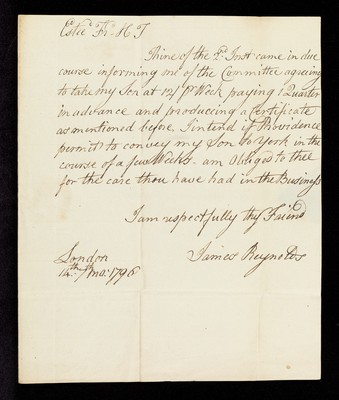 Este'd Fr'd H T
Thine of the 2d. Inst came in due
course informing me of the Committee agreeing
to take my Son at 12/ P Week paying 1 Quarter
in advance and producing a Certificate
as mentioned before. I intend if Providence
permit to convey my Son to York in the
course of a few Weeks. am Obliged to thee
for the care thou have had in the Business
I am respectfully thy Friend
James Reynolds
London
14th/7mo: 1796